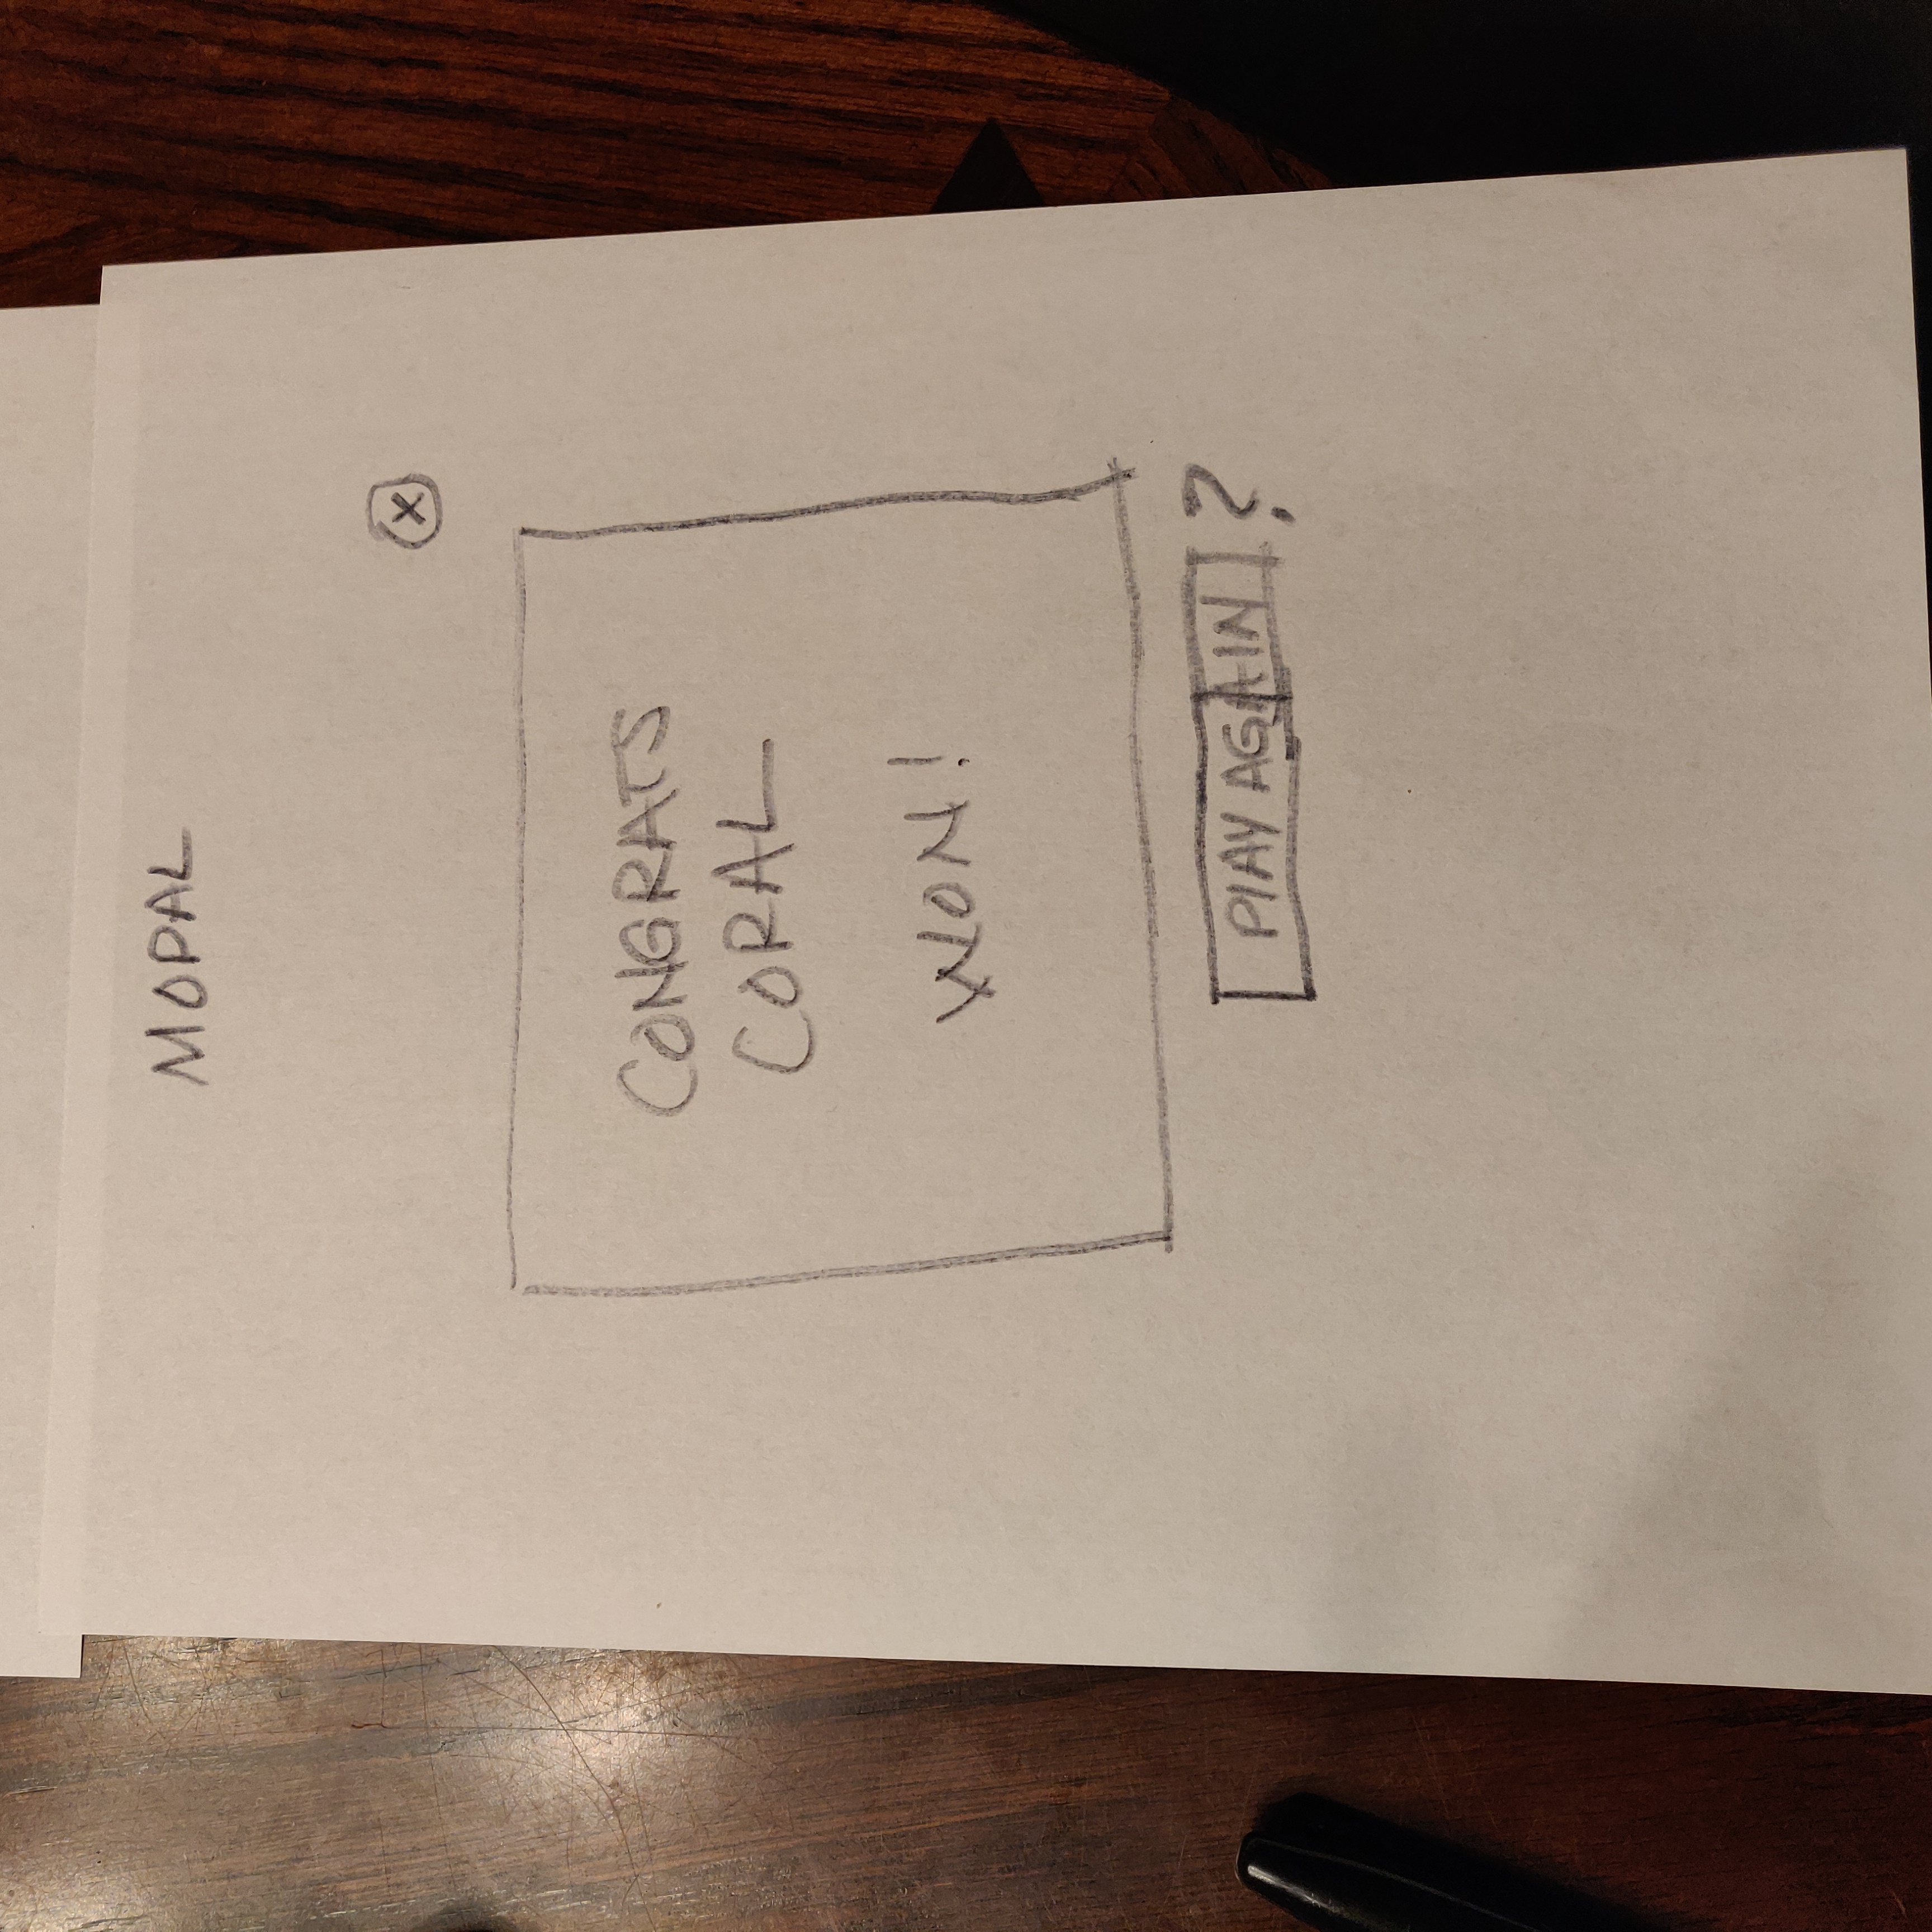 MODAL
X
CONGRATS
CORAL
WON!
PLAY AGAIN ?